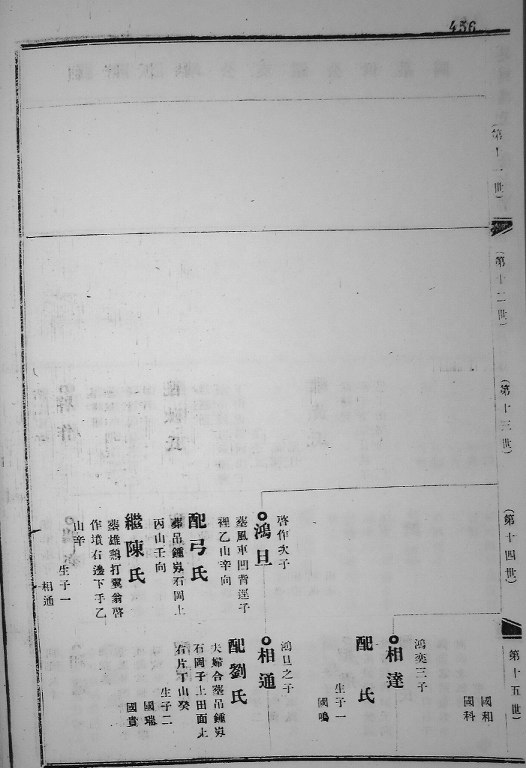 456
(第十一世)
(第十二世)
(第十三世)
(第十四世)
啓作次子
鴻旦
墓風車凹背逕子
裡乙山辛向
配弓氏
葬吊鍾石岡上
丙山壬向
繼陳氏
墓雄鵝打翼翁啓
作墳右邊下手乙
山辛
生子一
相通
(第十五世)
國相
國科
鴻奕三子
相達
配 氏
生子一
國鳴
鴻旦之子
相通
配劉氏
夫婦合墓吊鍾
石岡子上田面上
右片丁山癸
生子二
國瑞
國貴